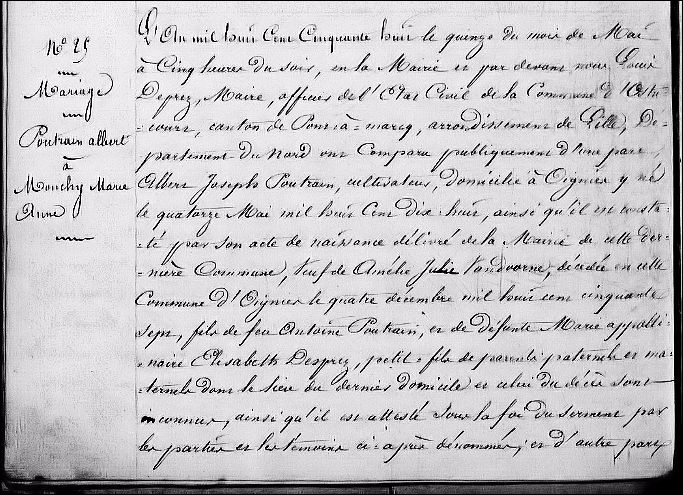 N° 25
Mariage
Poutrain albert
à
Monchy Marie
Anne
L'An mil huit Cent Cinquante huit le quinze du mois de Mai
à Cinq heures du soir, en la Mairie et par devant nous Louis
Deprez, Maire, officier de l'Etat Civil de la Commune d'Ostri-
-court, canton de Pont-à-marcq, arrondissement de Lille, Dé-
-partement du Nord ont Comparu publiquement d'une part,
Albert Joseph Poutrain, cultivateur, domicilié à Oignies y né
le quatorze Mai mil huit Cent Dix-huit, ainsi qu'il est consta-
-té par son acte de naissance délivré de la Mairie de cette der-
-nière Commune, Veuf de Amélie Julie Vandvorne, décédée en cette
Commune d'Oignies le quatre décembre mil huit cent cinquante
sept, fils de feu Antoine Poutrain, et de défunte Marie appolli-
-naire Elisabeth Desprez, petit-fils de parents paternels et ma-
-ternels dont le lieu du dernier domicile et celui du décès sont
inconnus, ainsi qu'il est attesté sous la foi du serment par
les parties et les témoins ci-après dénommés; et d'autre part,